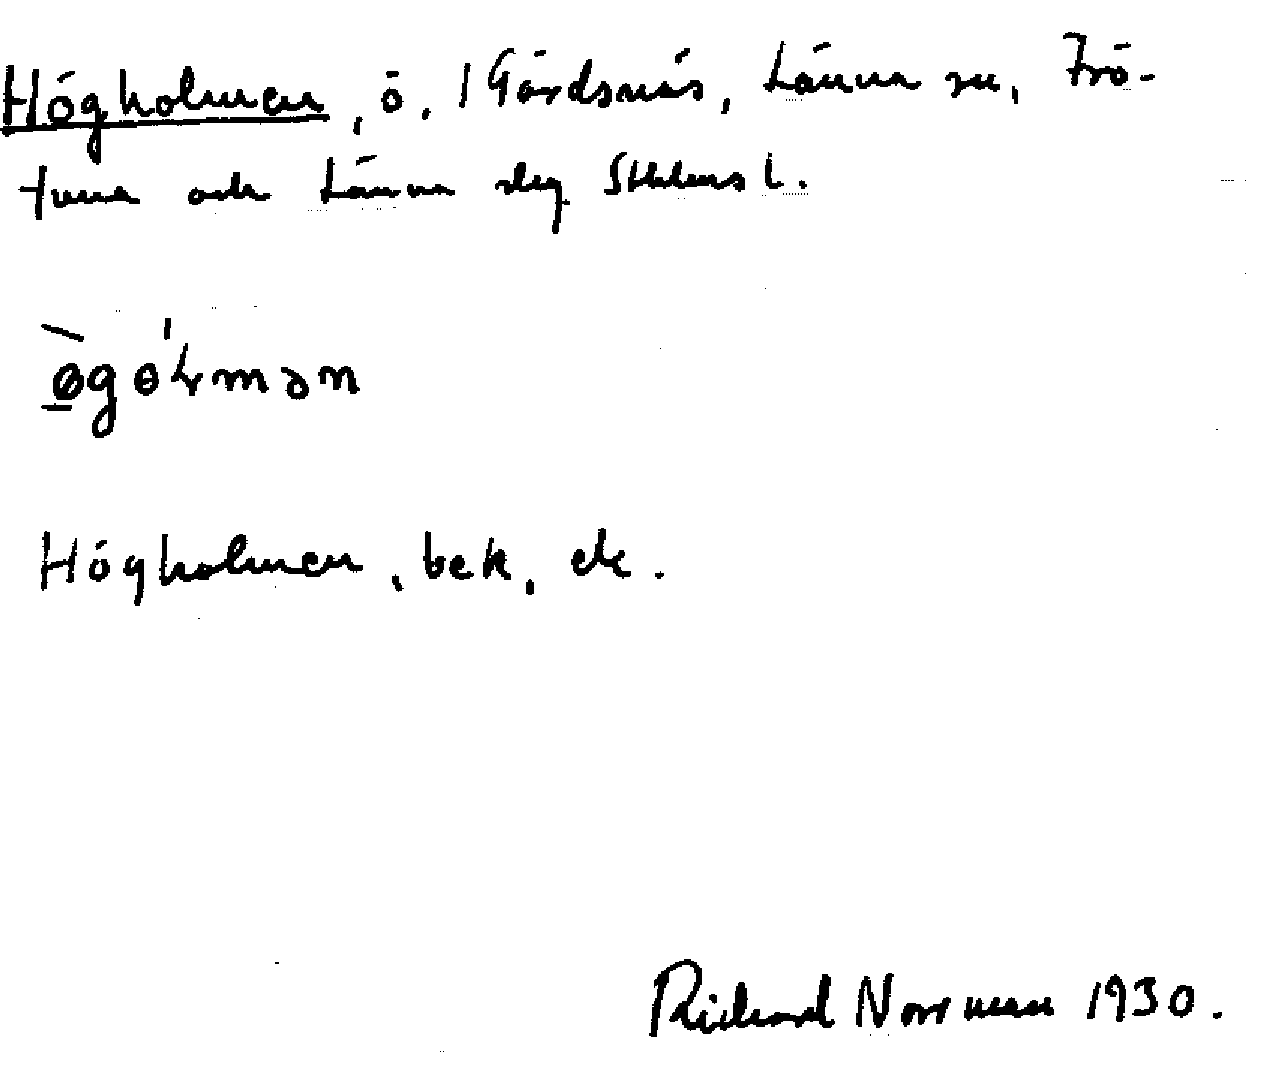 Högholmen, ö. 1 Gärdsnäs, Länna sn, Frö-
tuna och Länna slg Sthlms l.
ø̀gɵ'ɽmən
Högholmen, bek, ek.
Richard Norrman 1930.